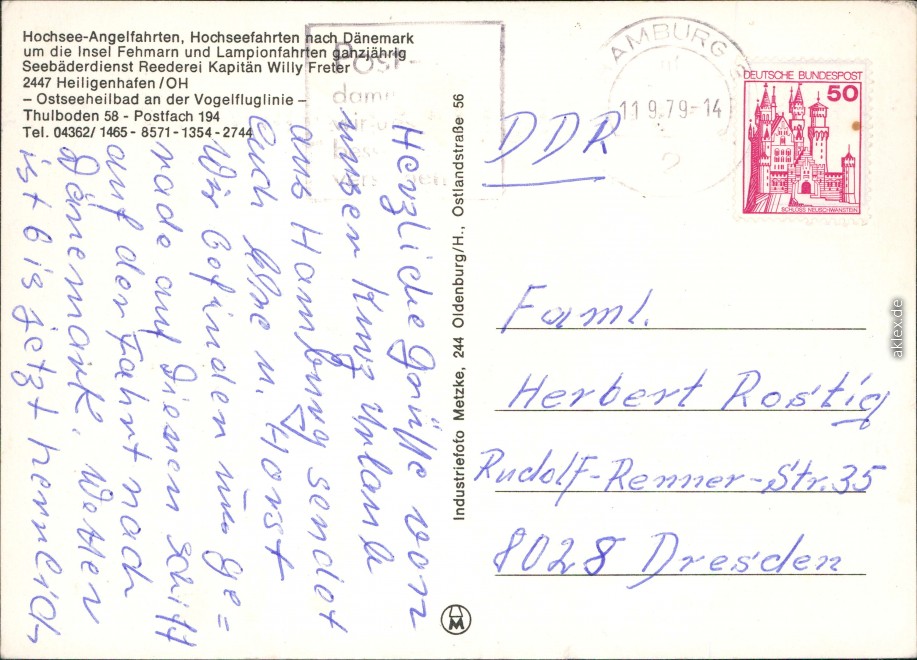 Hochsee-Angelfahrten, Hochseefahrten nach Dänemark
um die Insel Fehmarn und Lampionfahrten ganzjährig
Seebäderdienst Reederei Kapitän Willy Freter
2447 Heiligenhafen/OH
– Ostseeheilbad an der Vogelfluglinie –
Thulboden 58 - Postfach 194
Tel. 04362/1465 - 8571-1354-2744
Herzliche Grüße von
unsen Kurz Urlaub
aus Hamburg sendet
Euch Ilse u. Horst
Wir befinden uns ge=
rade auf diesen Schiff
auf der Fahrt nach
Dänemark. Wetter
ist bis jetzt herrlich
Industriefoto Metzke, 244 Oldenburg/H., Ostlandstraße 56
POST-
AMBURG
11.9.79-14
2
DEUTSCHE BUNDESPOST
50
SCHLOSS NEUSCHWANSTEIN
DDR
Faml.
Herbert Rostig
Rudolf-Renner-Str. 35
8028 Dresden
aklex.de